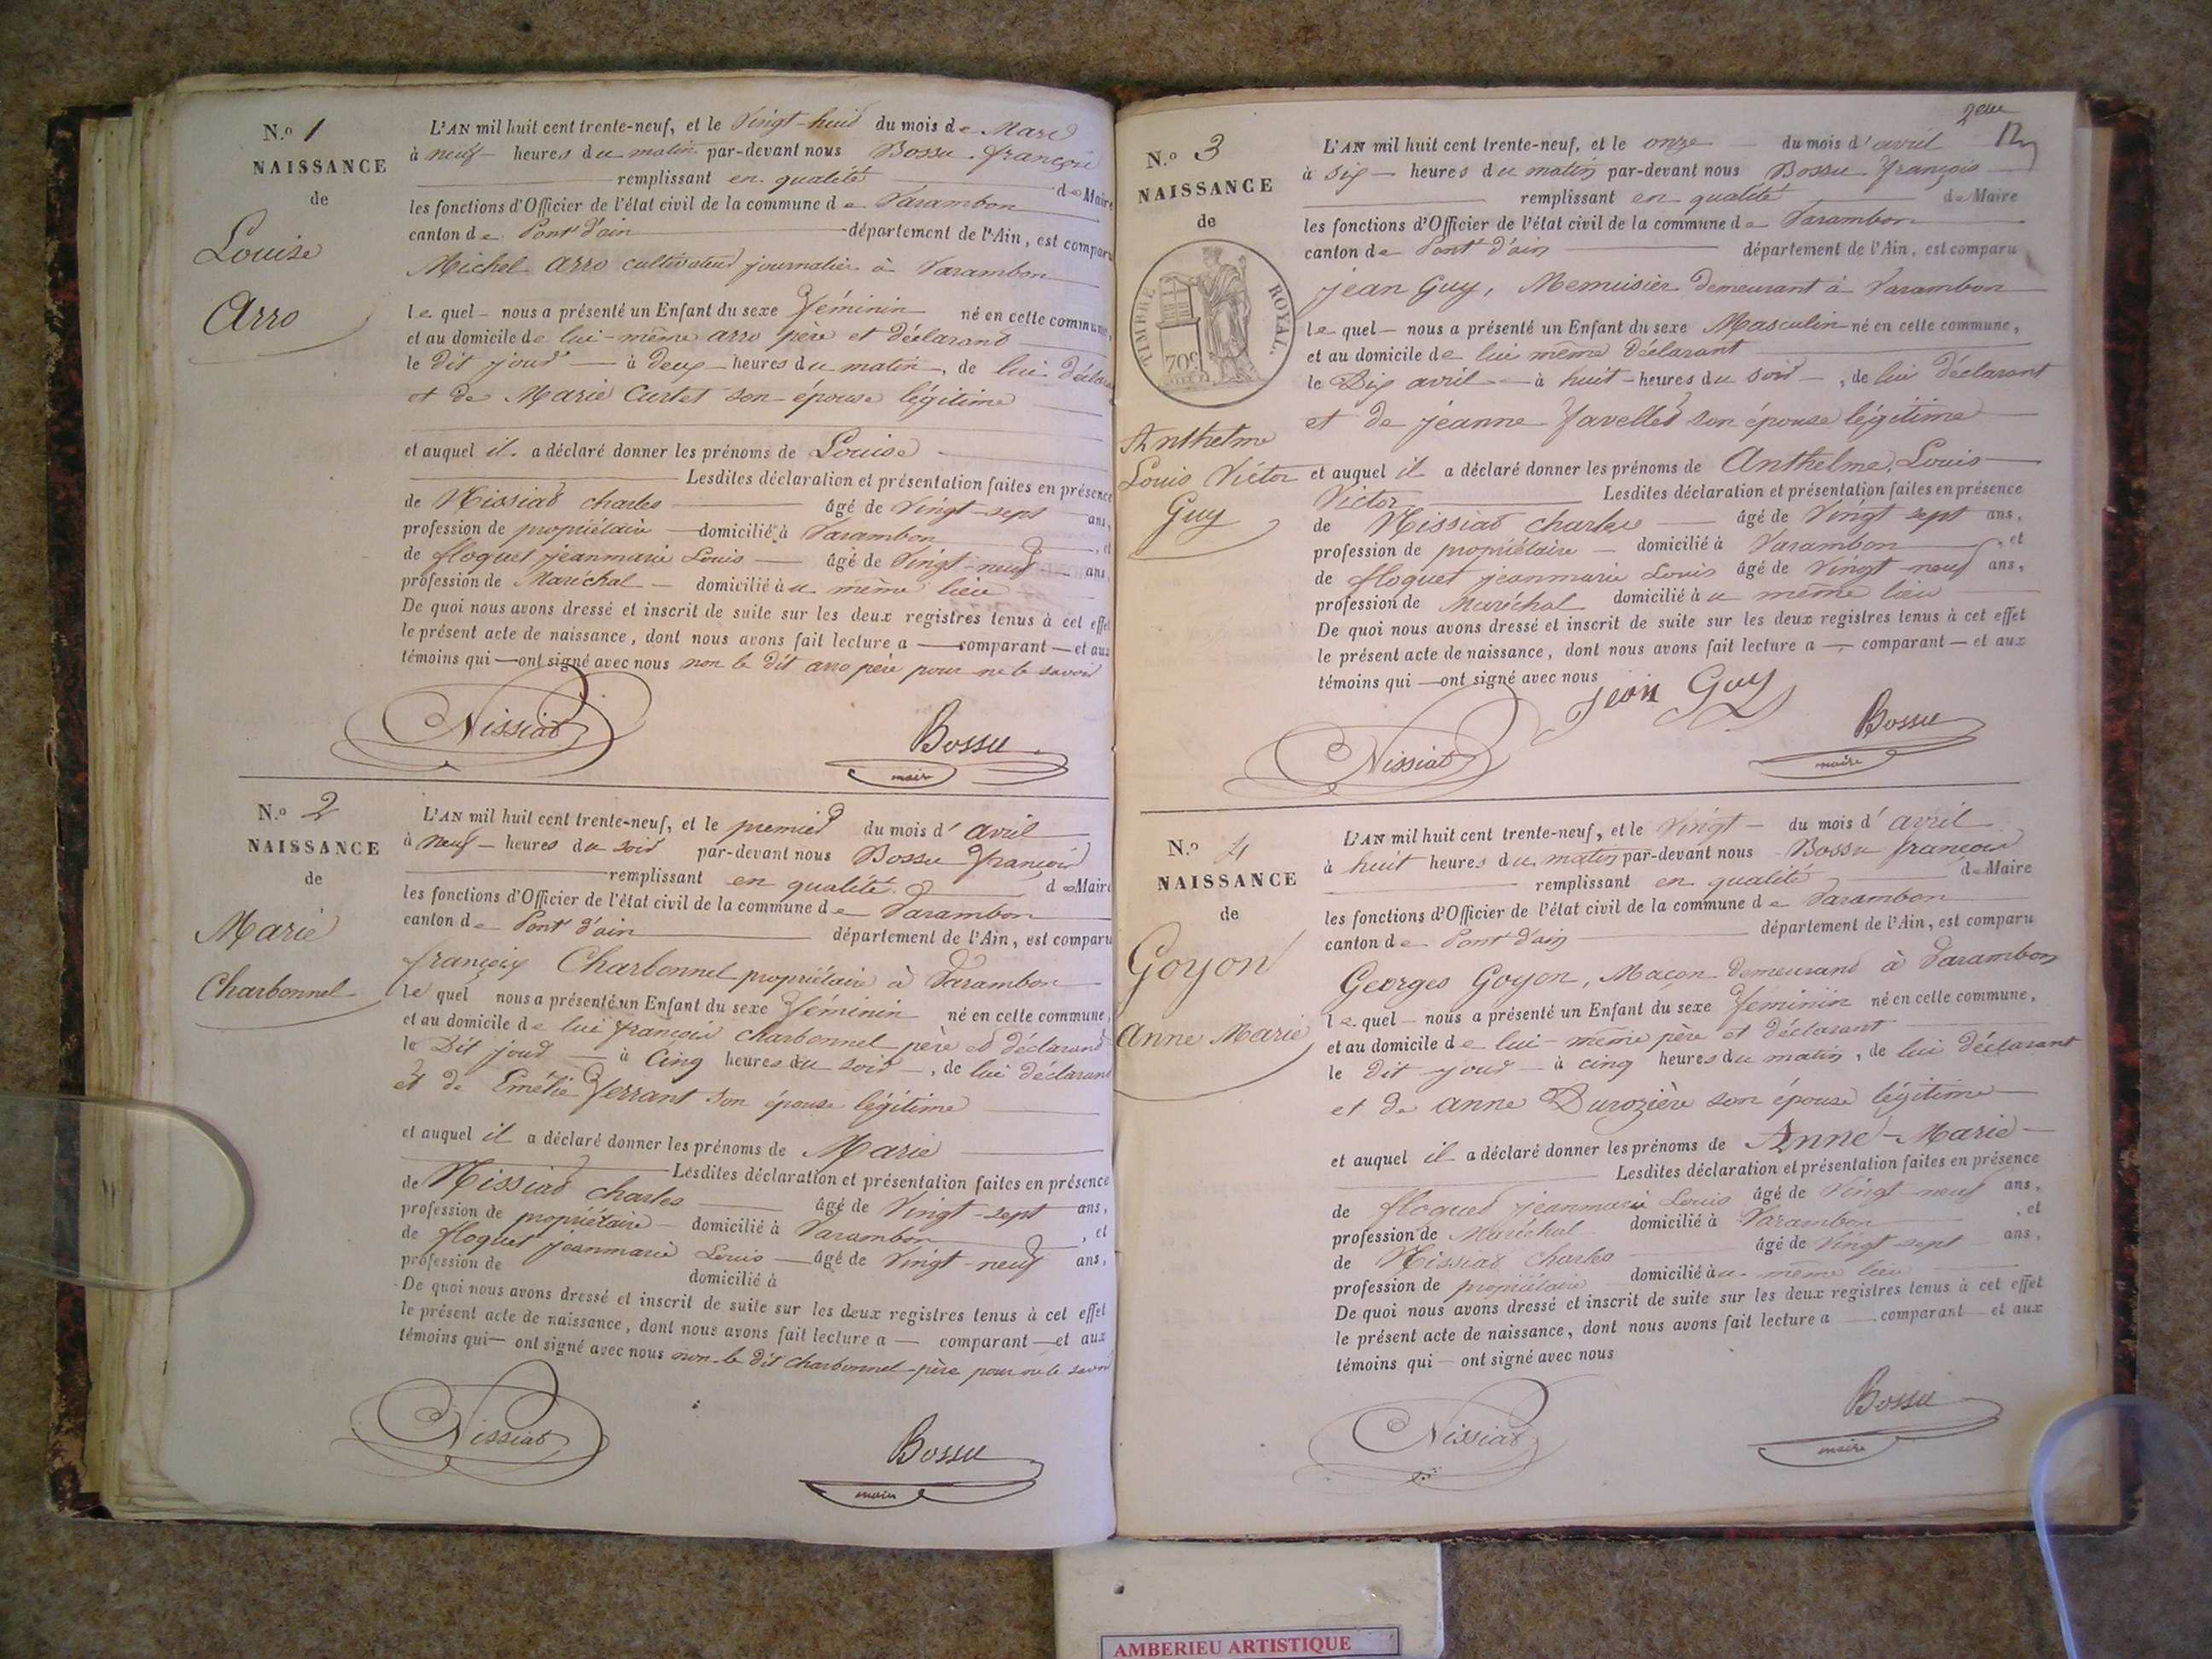 N.º 1
NAISSANCE
de
Louise
Arro
L'AN mil huit cent trente-neuf, et le Vingt-huit du mois de Mars
à neuf heures du matin par-devant nous Bossu françois
remplissant en qualité de Maire
les fonctions d'Officier de l'état civil de la commune de Varambon
canton de Pont d'ain département de l'Ain, est comparu
Michel arro cultivateur journalier à Varambon
le quel nous a présenté un Enfant du sexe féminin né en cette commune,
et au domicile de lui-même arro père et déclarant
le dit jour à deux heures du matin, de lui décla
et de Marie Curtet son épouse légitime
et auquel il a déclaré donner les prénoms de Louise
Lesdites déclaration et présentation faites en présence
de Nissiat charles âgé de Vingt-sept ans,
profession de propriétaire domicilié à Varambon, et
de floquet jeanmarie Louis âgé de Vingt-neuf ans,
profession de Maréchal domicilié au même lieu
De quoi nous avons dressé et inscrit de suite sur les deux registres tenus à cet effet
le présent acte de naissance, dont nous avons fait lecture a comparant et aux
témoins qui ont signé avec nous non le dit arro père pour ne le savoir
Nissiat
Bossu
maire
N.º 2
NAISSANCE
de
Marie
Charbonnel
L'AN mil huit cent trente-neuf, et le premier du mois d' avril
à neuf heures du soir par-devant nous Bossu françois
remplissant en qualité de Maire
les fonctions d'Officier de l'état civil de la commune de Varambon
canton de Pont d'ain département de l'Ain, est comparu
françois Charbonnel propriétaire à Varambon
le quel nous a présenté un Enfant du sexe féminin né en cette commune,
et au domicile de lui françois charbonnel père et déclarant
le Dit jour à Cinq heures du soir, de lui déclarant
et de Emélie ferrant son épouse légitime
et auquel il a déclaré donner les prénoms de Marie
Lesdites déclaration et présentation faites en présence
de Nissiat charles âgé de Vingt-sept ans,
profession de propriétaire domicilié à Varambon, et
de floquet jeanmarie Louis âgé de Vingt-neuf ans,
profession de domicilié à
De quoi nous avons dressé et inscrit de suite sur les deux registres tenus à cet effet
le présent acte de naissance, dont nous avons fait lecture a comparant et aux
témoins qui ont signé avec nous non le dit charbonnel père pour ne le savoir
Nissiat
Bossu
maire
2eme
N.º 3
NAISSANCE
de
TIMBRE ROYAL.
70c
Anthelme
Louis Victor
Guy
L'AN mil huit cent trente-neuf, et le onze du mois d' avril
à six heures du matin par-devant nous Bossu françois
remplissant en qualité de Maire
les fonctions d'Officier de l'état civil de la commune de Varambon
canton de Pont d'ain département de l'Ain, est comparu
jean Guy, Menuisier demeurant à Varambon
le quel nous a présenté un Enfant du sexe Masculin né en cette commune,
et au domicile de lui même déclarant
le Dix avril à huit heures du soir, de lui déclarant
et de jeanne favellet son épouse légitime
et auquel il a déclaré donner les prénoms de Anthelme, Louis
Victor Lesdites déclaration et présentation faites en présence
de Nissiat charles âgé de Vingt sept ans,
profession de propriétaire domicilié à Varambon, et
de floquet jeanmarie Louis âgé de Vingt-neuf ans,
profession de Maréchal domicilié au même lieu
De quoi nous avons dressé et inscrit de suite sur les deux registres tenus à cet effet
le présent acte de naissance, dont nous avons fait lecture a comparant et aux
témoins qui ont signé avec nous
jean Guy
Nissiat
Bossu
maire
N.º 4
NAISSANCE
de
Goyon
Anne Marie
L'AN mil huit cent trente-neuf, et le Vingt du mois d' avril
à huit heures du matin par-devant nous Bossu françois
remplissant en qualité de Maire
les fonctions d'Officier de l'état civil de la commune de Varambon
canton de Pont d'ain département de l'Ain, est comparu
Georges Goyon, Maçon demeurant à Varambon
le quel nous a présenté un Enfant du sexe féminin né en cette commune,
et au domicile de lui-même père et déclarant
le dit jour à cinq heures du matin, de lui déclarant
et de anne Durozière son épouse légitime
et auquel il a déclaré donner les prénoms de Anne-Marie
Lesdites déclaration et présentation faites en présence
de floquet jeanmarie Louis âgé de Vingt-neuf ans,
profession de Maréchal domicilié à Varambon, et
de Nissiat charles âgé de Vingt sept ans,
profession de propriétaire domicilié au même lieu
De quoi nous avons dressé et inscrit de suite sur les deux registres tenus à cet effet
le présent acte de naissance, dont nous avons fait lecture a comparant et aux
témoins qui ont signé avec nous
Nissiat
Bossu
maire
AMBERIEU ARTISTIQUE